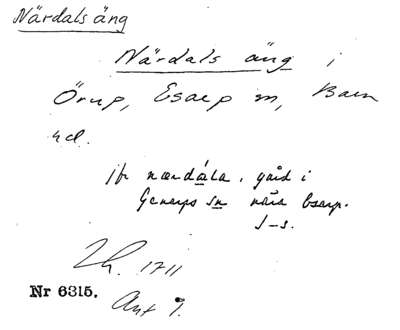 Närdals äng
Närdals äng i
Örup, Esarp sn, Bara
hd.
jfr nærdála, gård i
Genarps sn nära Esarp.
J-s.
Lh. 1711
Nr 6315.
Ant 9.